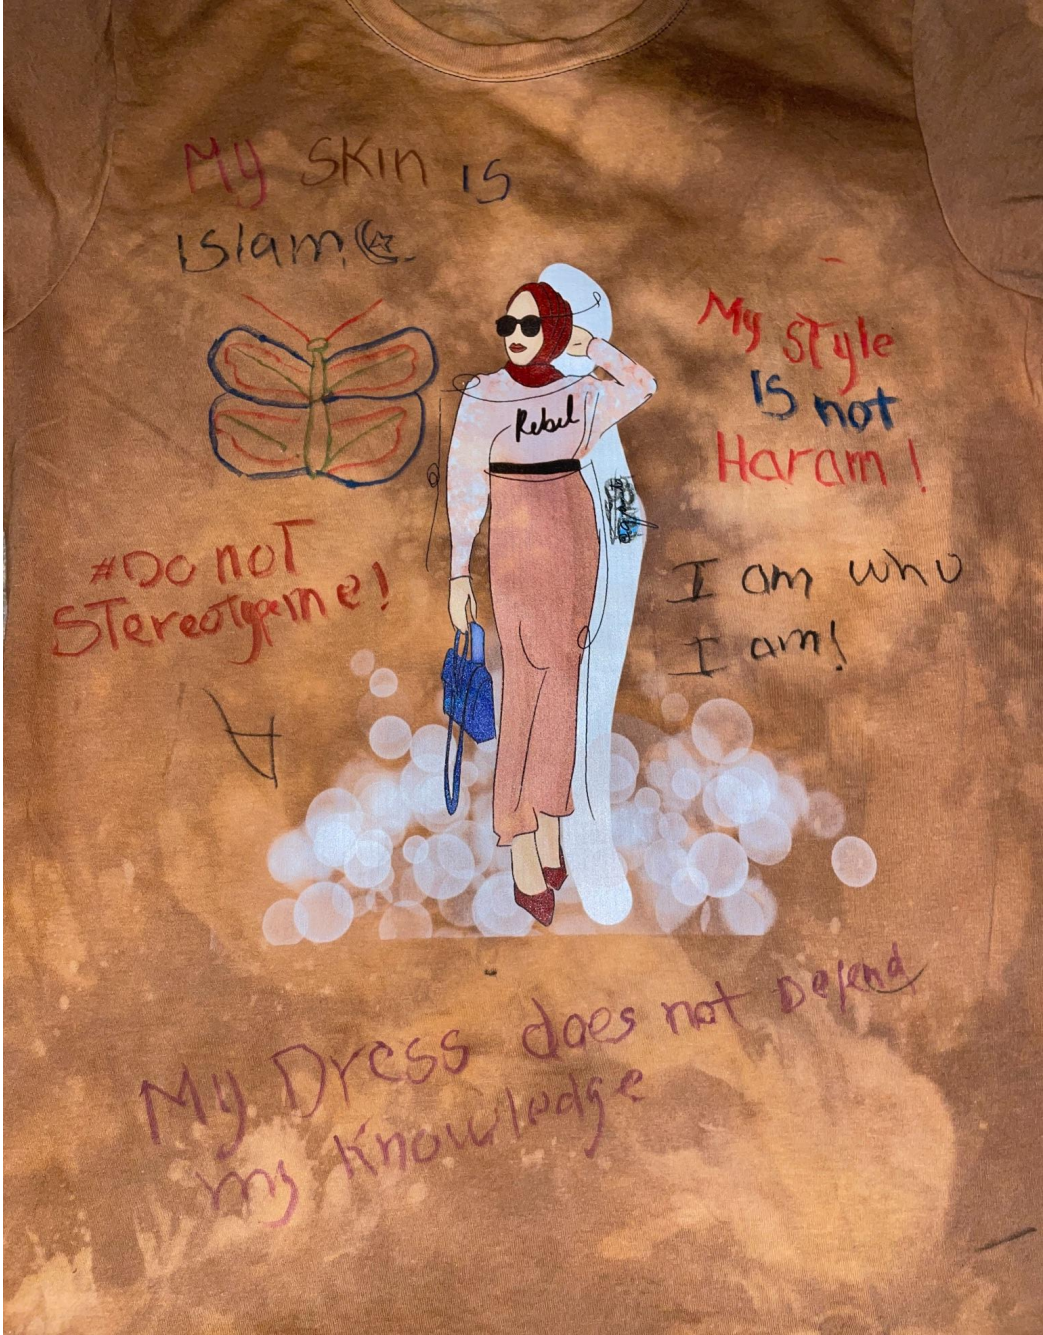 My Skin is
islam
My style
is not
Haram!
Rebel
#Do not
Stereotypeme!
I am who
I am!
A
My Dress does not Defend
my knowledge